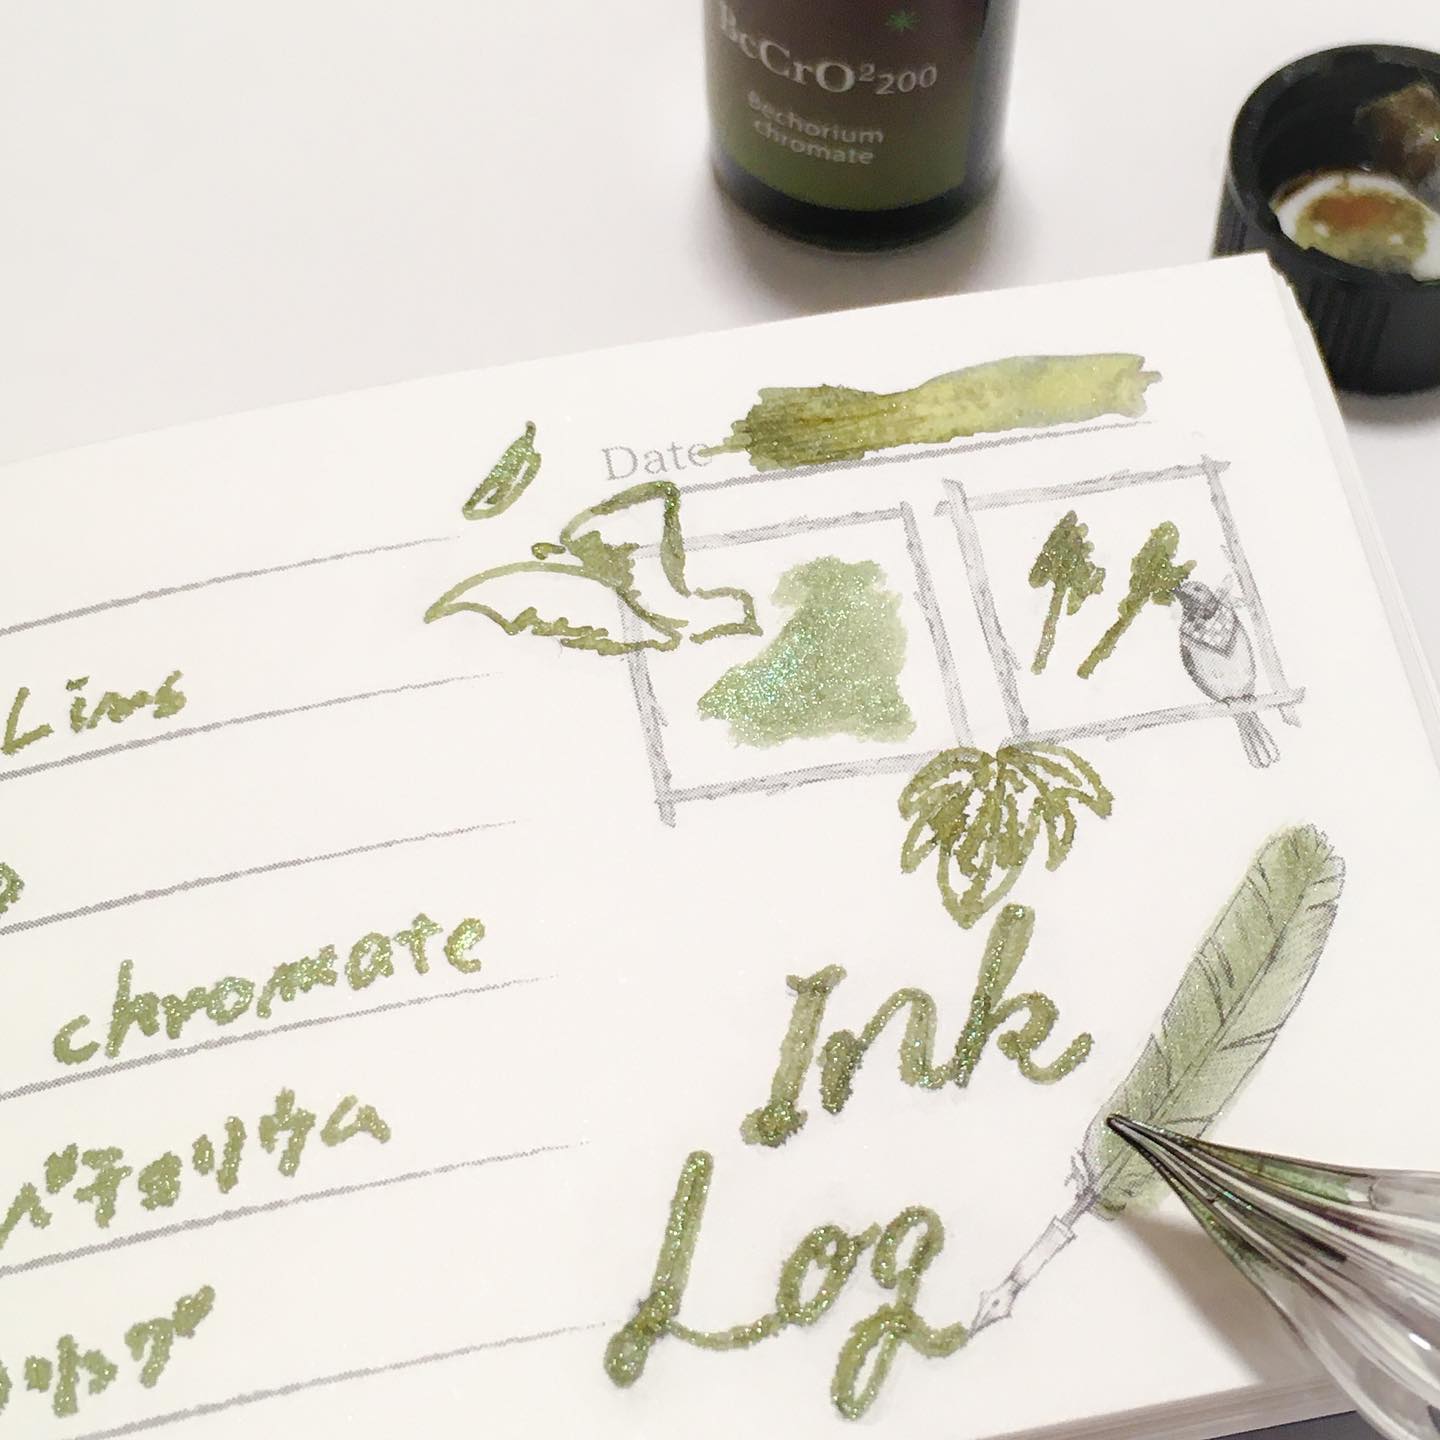 BcCrO²200
Bechorium
chromate
Date
Lims
chromate
ベチョリウム
Ink
Log